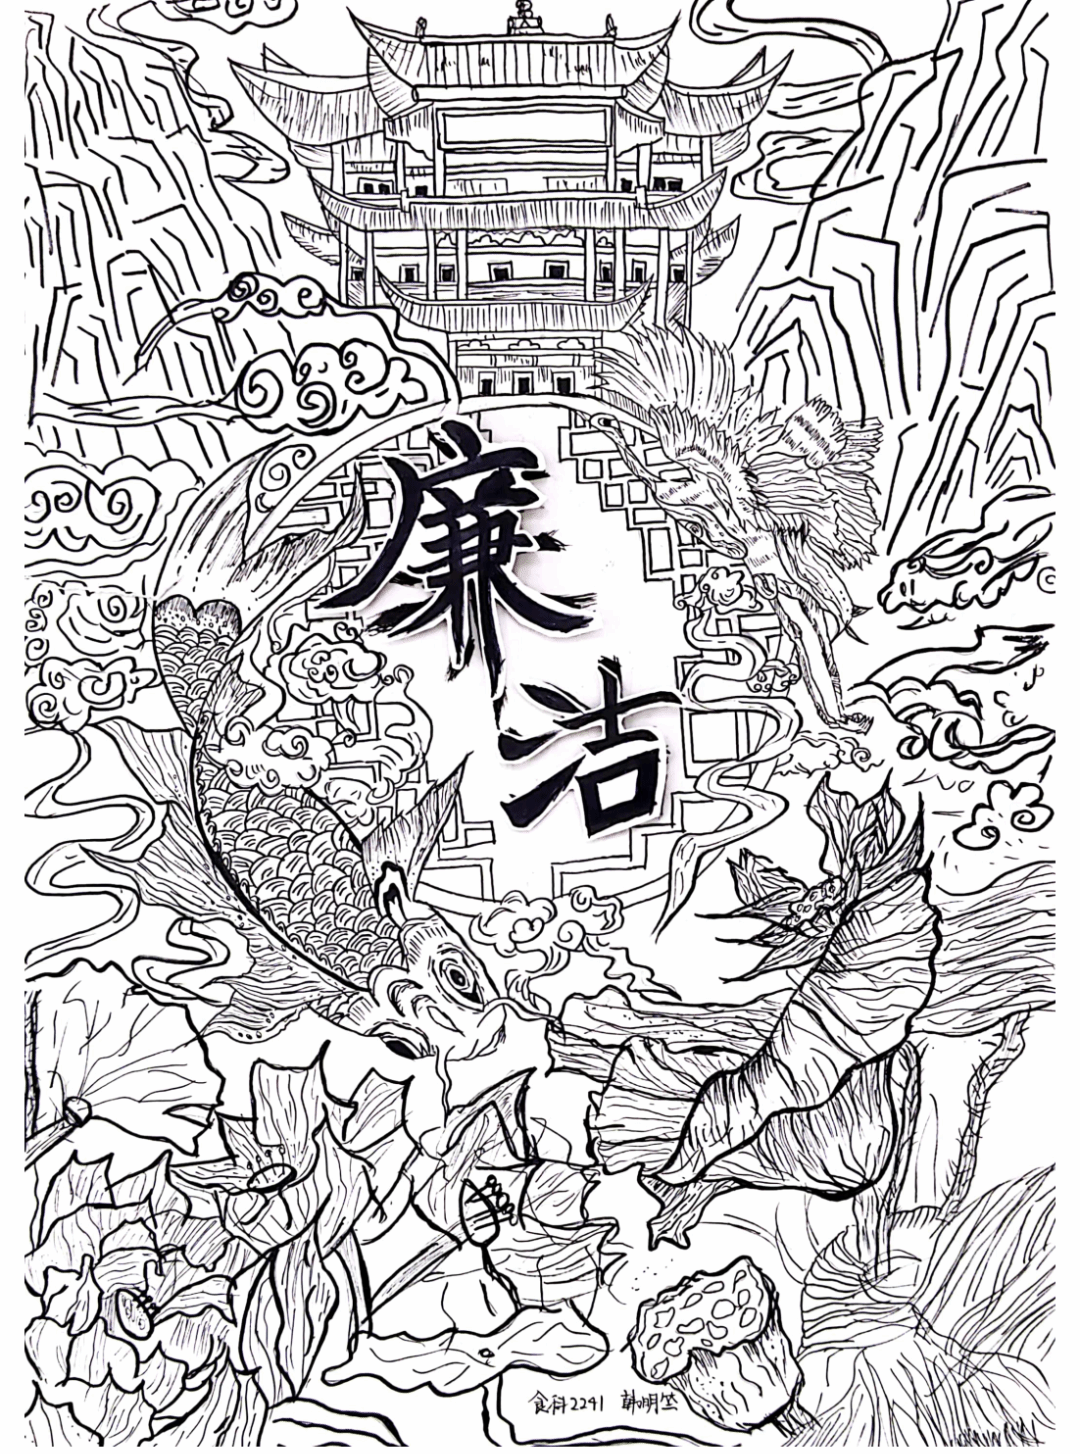 廉
洁
食科2241 韩明竺